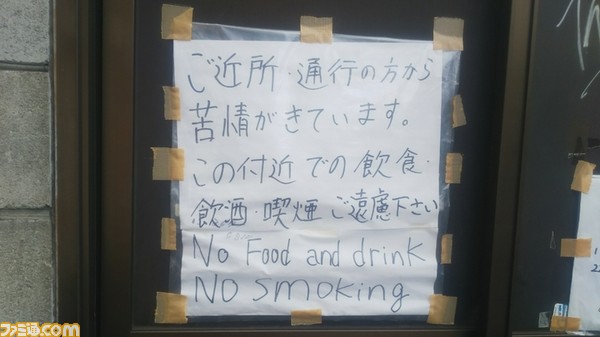 ご近所・通行の方から
苦情がきています。
この付近での飲食・
飲酒・喫煙ご遠慮下さい
No Food and drink
NO smoking
ファミ通.com